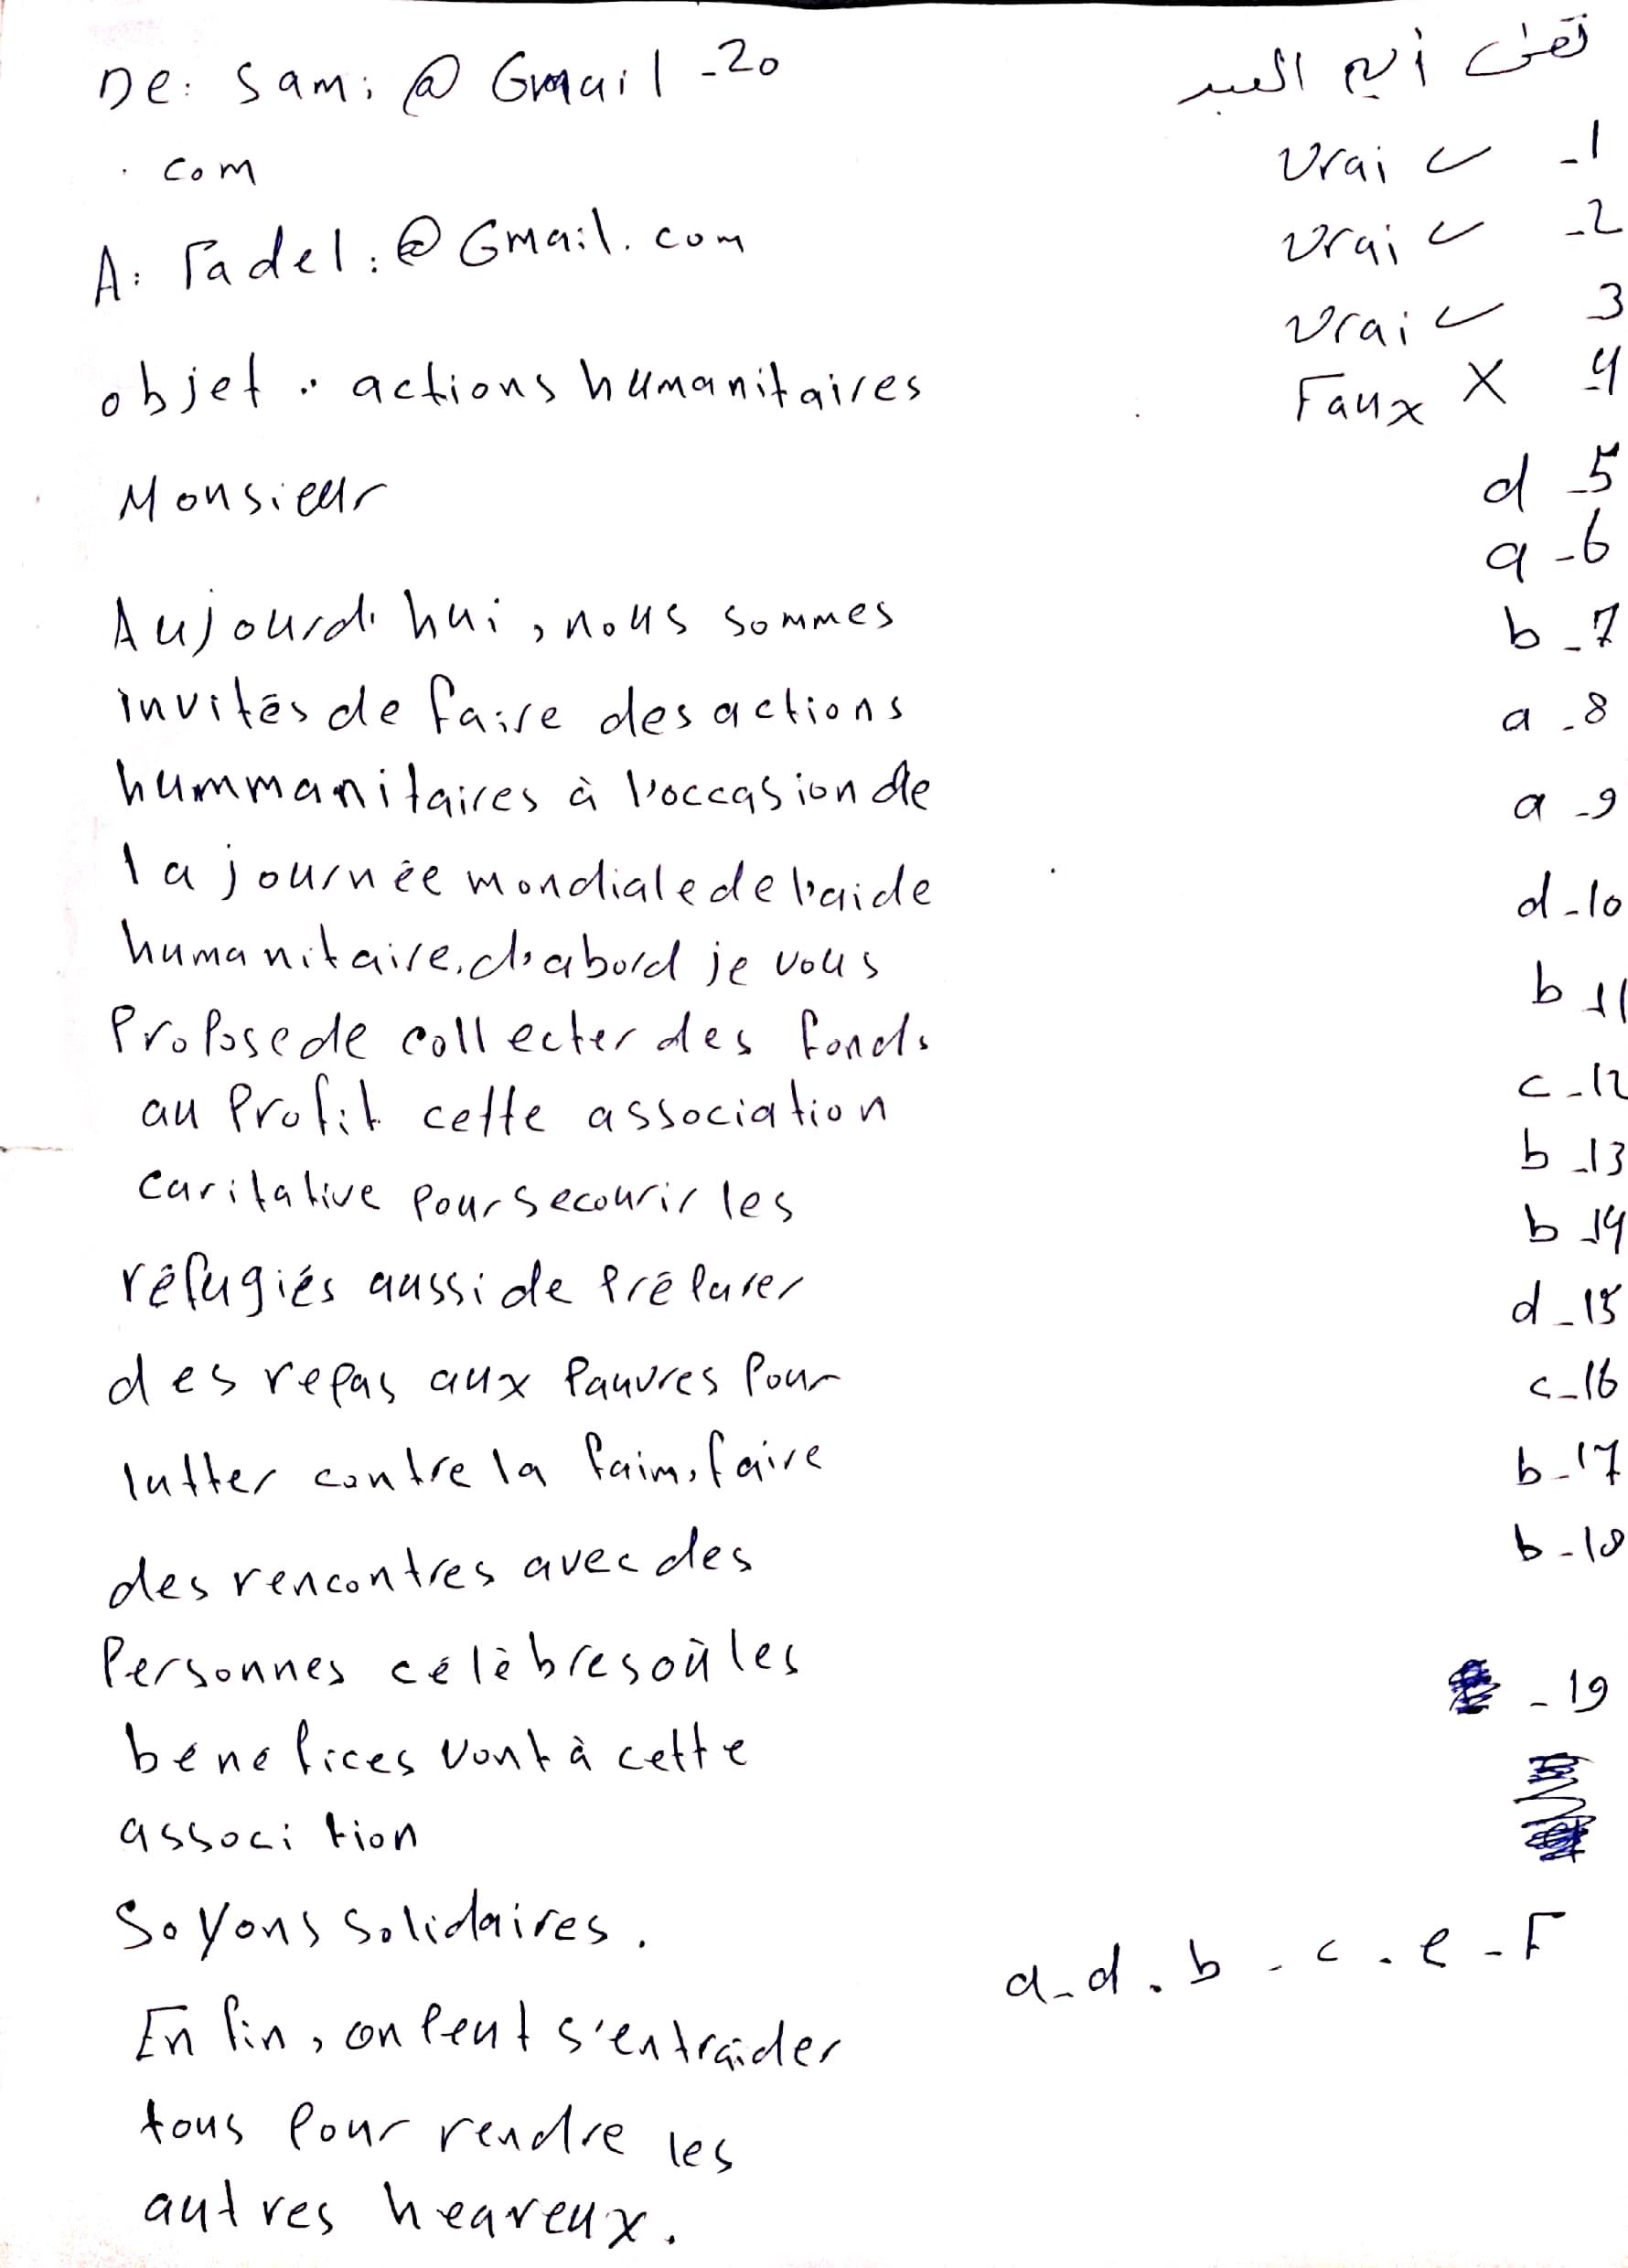 تقى أيم العبد
Vrai ✓ -1
Vrai ✓ -2
Vrai ✓ 3
Faux X -4
d -5
a -6
b -7
a -8
a -9
d -10
b 11
c -12
b -13
b -14
d -15
c -16
b -17
b -18
-19
a - d . b - c . e - F
De: Sami @ Gmail -20
. com
A: Fadel: @ Gmail. com
objet : actions humanitaires
Monsieur
Aujourd' hui, nous sommes
invités de faire des actions
hummanitaires à l'occasion de
la journée mondiale de l'aide
humanitaire. d'abord je vous
Propose de collecter des fonds
au Profit cette association
caritative pour secourir les
réfugiés aussi de Préparer
des repas aux Pauvres Pour
lutter contre la faim, faire
des rencontres avec des
Personnes célèbres où les
bénéfices vont à cette
associ tion
Soyons solidaires.
En fin, on Peut s'entraider
tous Pour rendre les
autres heareux.